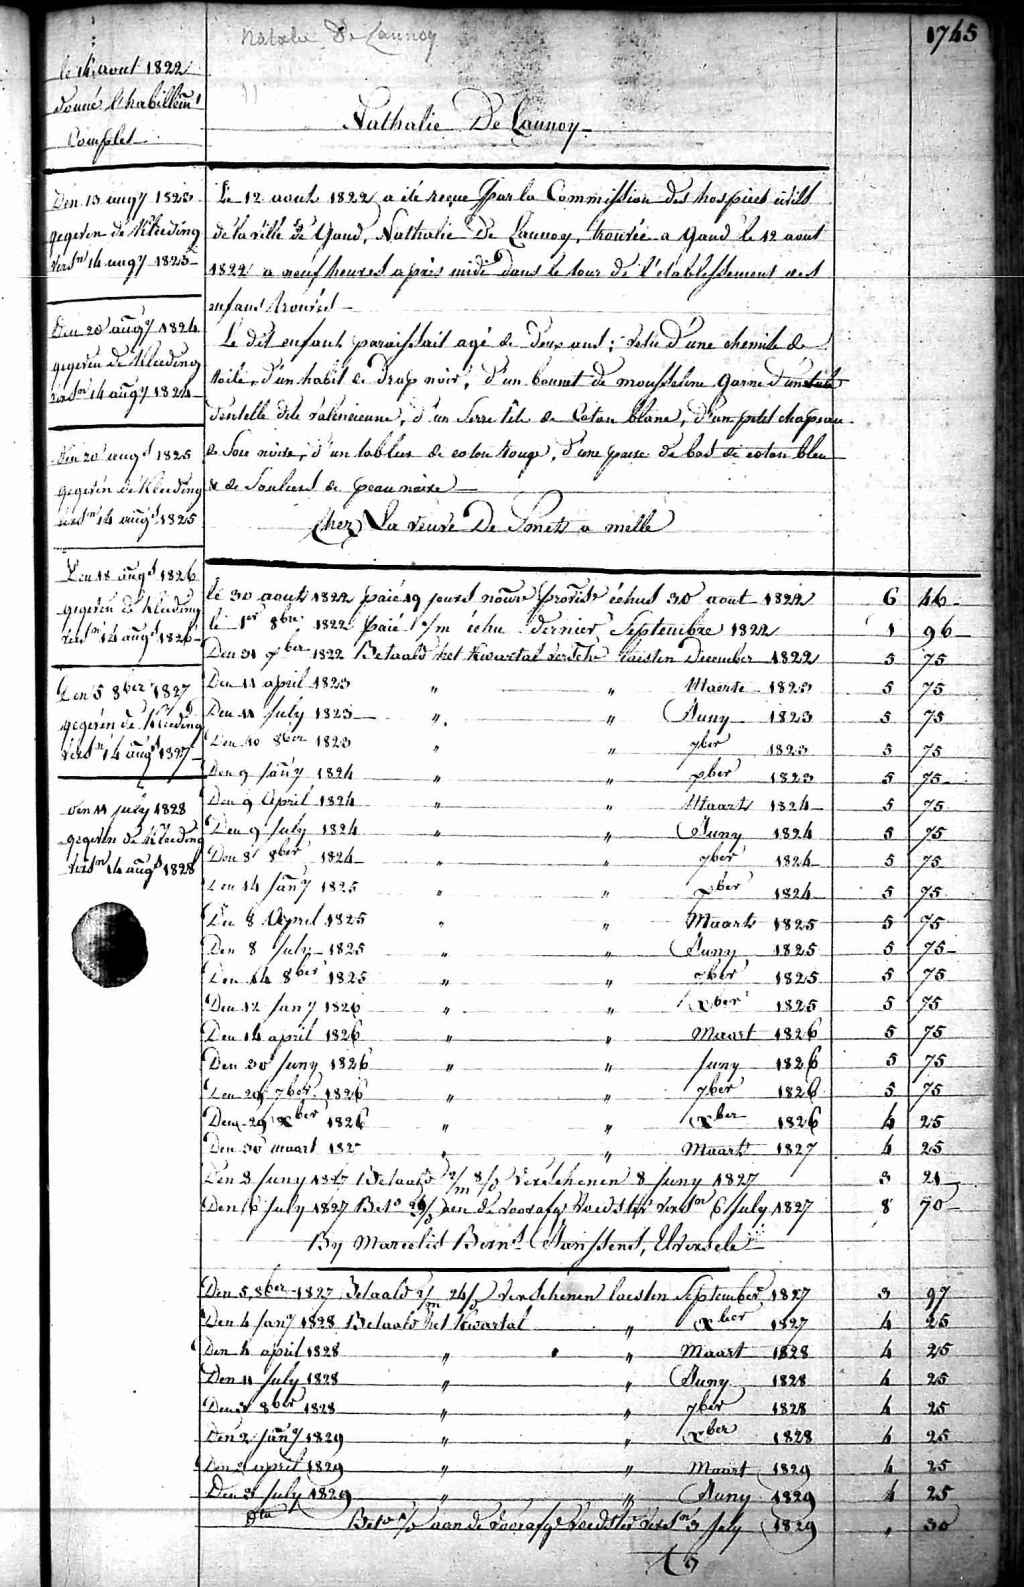 1745
Natalie De Launoy
le 14 aout 1822
donné l'habillemt
Complet
Nathalie De Launoy
Den 13 augy 1823
gegeven de Kleeding
versn 14 augy 1823
Den 20 augy 1824
gegeven de Kleeding
versn 14 augy 1824
Den 20 augt 1825
gegeven de Kleeding
versn 14 augt 1825
Den 18 augt 1826
gegeven de Kleeding
versn 14 augt 1826
Den 5 8ber 1827
gegeven de Kleeding
versn 14 augt 1827
den 11 july 1828
gegeven de Kleeding
versn 14 augt 1828
Le 12 aout 1822 a été reçue par la Commission des hospices civils
de la ville de Gand, Nathalie De Launoy, trouvée a Gand le 12 aout
1822 a neuf heures après midi dans le tour de l'établissement des
enfans trouvés
Le dit enfant paraissait agé de deux ans; vetu d'une chemise de
toile, d'un habit de drap noir, d'un bonnet de mousseline garni d'une
dentelle dite valencienne, d'un serre tête de Coton blanc, d'un petit chapeau
de Soie noire, d'un tablier de coton rouge, d'une paire de bas de coton bleu
& de Souliers de peau noire
Chez La veuve De Smets a melle
le 30 aout 1822 paié 19 jours échus 30 aout 1822 6 46
le 1er 8bre 1822 paié 1/m échu dernier Septembre 1822 1 96
Den 31 xber 1822 Betaald het Kwartal laesten December 1822 5 75
Den 11 april 1823 " " Maerte 1823 5 75
Den 11 July 1823 " " Juny 1823 5 75
Den 10 8ber 1823 " " 7ber 1823 5 75
Den 9 Jany 1824 " " xber 1823 5 75
Den 9 April 1824 " " Maart 1824 5 75
Den 9 July 1824 " " Juny 1824 5 75
Den 8 8ber 1824 " " 7ber 1824 5 75
Den 14 Jany 1825 " " xber 1824 5 75
Den 8 April 1825 " " Maart 1825 5 75
Den 8 July 1825 " " Juny 1825 5 75
Den 14 8ber 1825 " " 7ber 1825 5 75
Den 12 Jany 1826 " " xber 1825 5 75
Den 14 april 1826 " " Maart 1826 5 75
Den 30 Juny 1826 " " Juny 1826 5 75
Den 29 7ber 1826 " " 7ber 1826 5 75
Den 29 xber 1826 " " xber 1826 4 25
Den 30 maart 1827 " " Maart 1827 4 25
Den 8 Juny 1827 Betaald 2/m 8/d verschenen 8 Juny 1827 3 21
Den 6 July 1827 Bet. aen de voorafge voedster versn 6 July 1827 8 70
By Marcelis Bernd Janssens, Elversele
Den 5 8ber 1827 Betaald 2/m 24/d verschenen laesten September 1827 3 97
Den 4 Jany 1828 Betaald het Kwartal " xber 1827 4 25
Den 4 april 1828 " " Maart 1828 4 25
Den 11 July 1828 " " Juny 1828 4 25
Den 3 8ber 1828 " " 7ber 1828 4 25
Den 2 Jany 1829 " " xber 1828 4 25
Den 2 april 1829 " " Maart 1829 4 25
Den 3 July 1829 " " Juny 1829 4 25
dto Bet. aan de voorafge voedster versn 3 July 1829 " 30